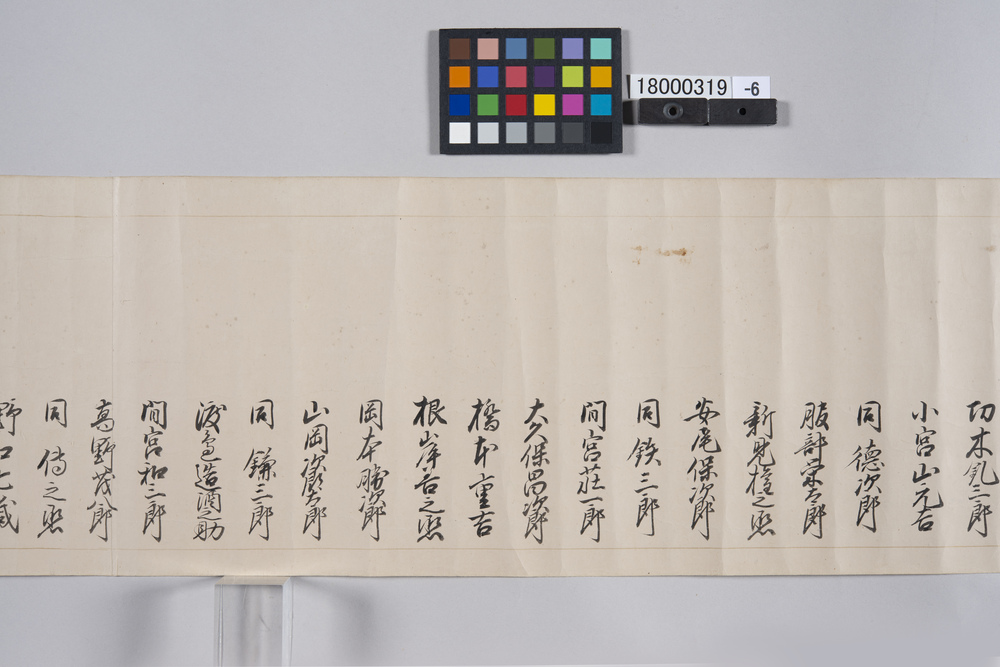 18000319 -6
切木凡三郎
小宮山元吉
同 德次郎
服部栄太郎
新見権之丞
安尾保次郎
同 鉄三郎
間宮荘一郎
大久保昌次郎
橋本重吉
根岸吉之丞
岡本勝次郎
山岡次郎太郎
渡邉造酒之助
同 鎌三郎
間宮和三郎
高野茂八郎
同 侍之丞
野口七蔵